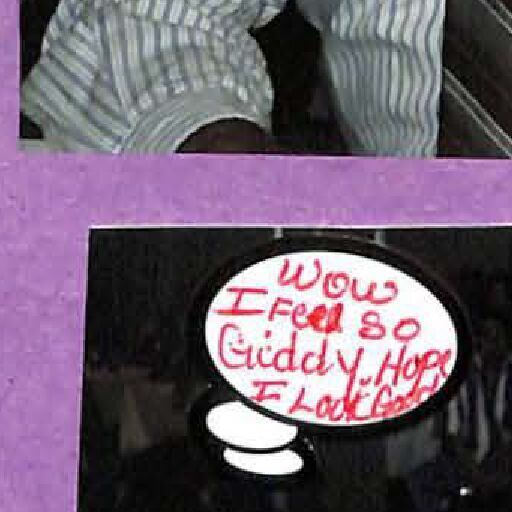 WOW
I Feel SO
Giddy. Hope
I Look Good